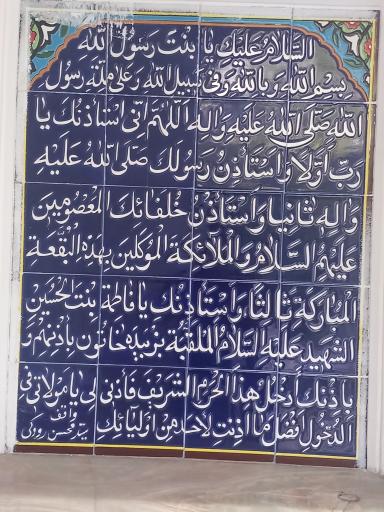 السَّلامُ عَلَيْكِ يا بِنْتَ رَسُولِ اللهِ
بِسْمِ اللهِ وَ بِاللهِ وَ فی سَبیلِ اللهِ وَ عَلی مِلَّةِ رَسُولِ
اللهِ صَلَّی اللهُ عَلَيْهِ وَ الِهِ اَللّهُمَّ اِنّی اَسْتَاْذِنُكَ يا
رَبِّ اَوَّلاً وَ اَسْتَاْذِنُ رَسُولَكَ صَلَّی اللهُ عَلَيْهِ
وَ الِهِ ثانِياً وَ اَسْتَاْذِنُ خُلَفائَكَ الْمَعْصُومینَ
عَلَيْهِمُ السَّلامُ وَ الْمَلائِكَةَ الْمُوَكَّلینَ بِهذِهِ الْبُقْعَةِ
الْمُبارَكَةِ ثالِثاً وَ اَسْتَاْذِنُكِ يا فاطِمَةُ بِنْتَ الْحُسَيْنِ
الشَّهیدِ عَلَيْهِ السَّلامُ الْمُلَقَّبَةَ بِزُبَيْدِه خاتُون بِاِذْنِهِمْ وَ
بِاِذْنِكِ اَدْخُلُ هذَا الْحَرَمَ الشَّریفَ فَاْذَنی لی يا مَوْلاتی فِی
الدُّخُولِ اَفْضَلَ ما اَذِنْتِ لِاَحَدٍ مِنْ اَوْلِيائِكِ
واقف
سید محسن رودباری